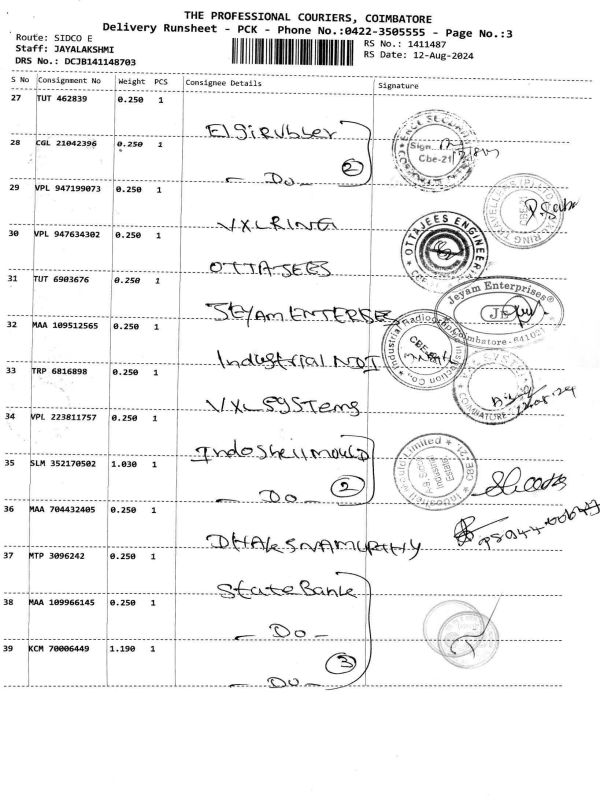 THE PROFESSIONAL COURIERS, COIMBATORE
Delivery Runsheet - PCK - Phone No.:0422-3505555 - Page No.:3
Route: SIDCO E
RS No.: 1411487
Staff: JAYALAKSHMI
RS Date: 12-Aug-2024
DRS No.: DCJB141148703
S No Consignment No Weight PCS Consignee Details Signature
27 TUT 462839 0.250 1
Elgirubber
28 CGL 21042396 0.250 1
- Do - 2
Sign.
Cbe-21
29 VPL 947199073 0.250 1
VXLRING
30 VPL 947634302 0.250 1
OTTAJEES
OTTAJEES ENGINEERI
31 TUT 6903676 0.250 1
JEYAM ENTERPRISES
Jeyam Enterprises®
JE
Coimbatore-641021
32 MAA 109512565 0.250 1
Industrial NDT
33 TRP 6816898 0.250 1
VXL SYSTEMS
34 VPL 223811757 0.250 1
Indoshellmould
35 SLM 352170502 1.030 1
- Do - 2
36 MAA 704432405 0.250 1
DHAKSNAMURTHY
37 MTP 3096242 0.250 1
State Bank
38 MAA 109966145 0.250 1
- Do -
39 KCM 70006449 1.190 1
- Do - 3